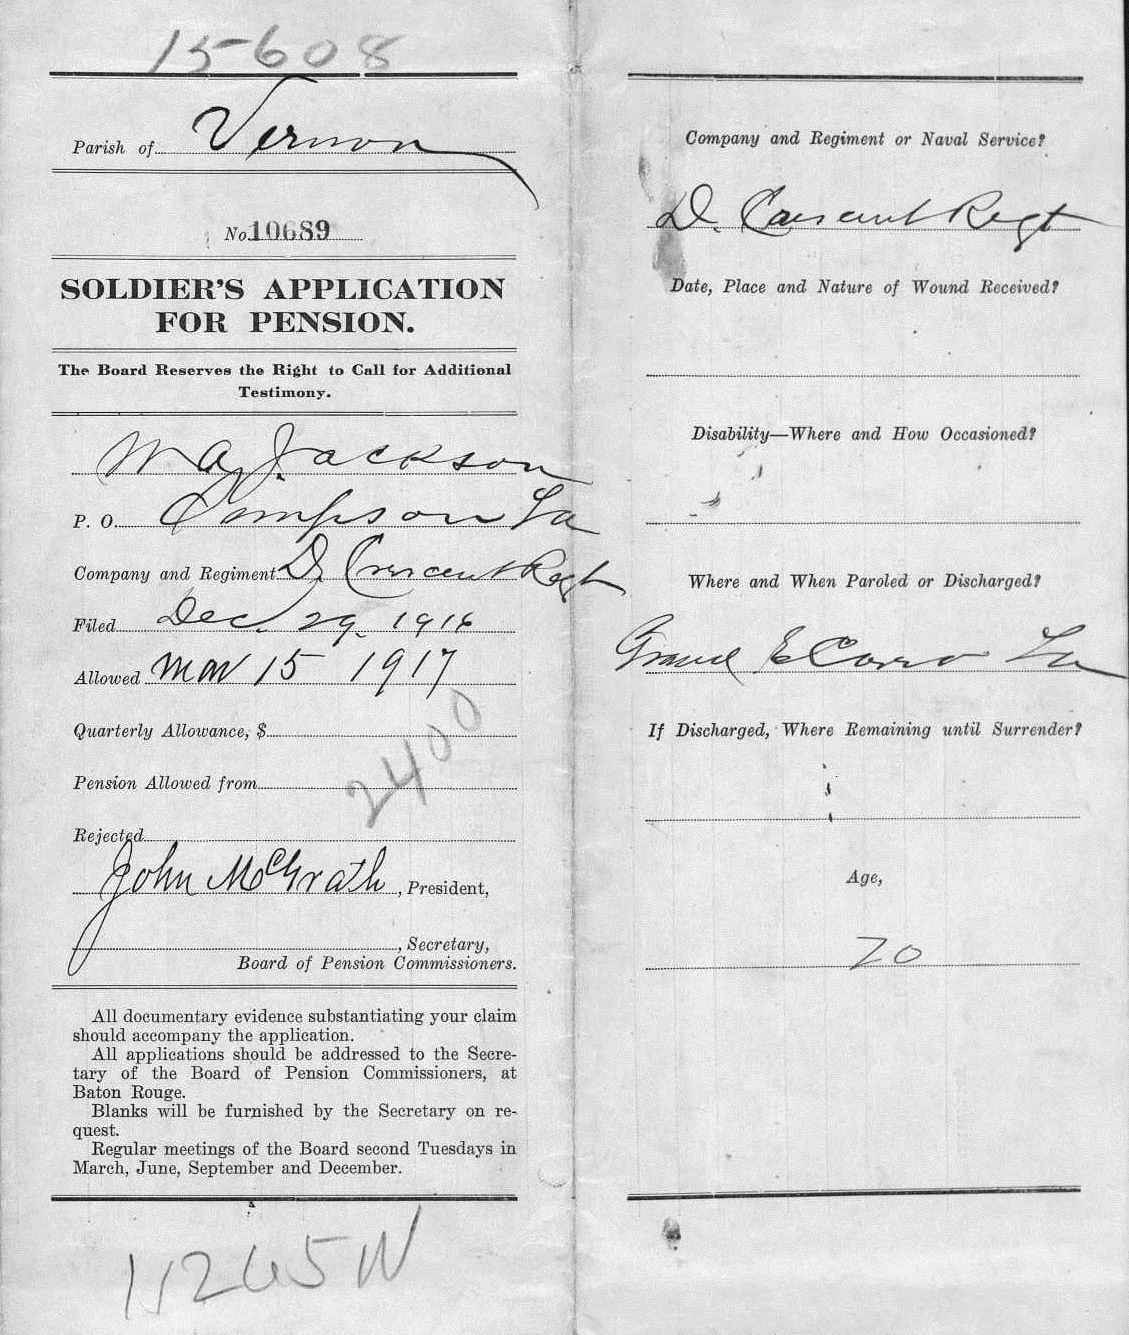 15608
Parish of Vernon
No. 10689
SOLDIER'S APPLICATION
FOR PENSION.
The Board Reserves the Right to Call for Additional
Testimony.
W A Jackson
P. O. Simpson La
Company and Regiment D. Crescent Regt
Filed Dec. 29. 1916
Allowed Mar 15 1917
Quarterly Allowance, $
2400
Pension Allowed from
Rejected
John McGrath, President,
, Secretary,
Board of Pension Commissioners.
All documentary evidence substantiating your claim
should accompany the application.
All applications should be addressed to the Secre-
tary of the Board of Pension Commissioners, at
Baton Rouge.
Blanks will be furnished by the Secretary on re-
quest.
Regular meetings of the Board second Tuesdays in
March, June, September and December.
Company and Regiment or Naval Service?
D. Crescent Regt
Date, Place and Nature of Wound Received?
Disability—Where and How Occasioned?
Where and When Paroled or Discharged?
Grand Ecore La
If Discharged, Where Remaining until Surrender?
Age,
70